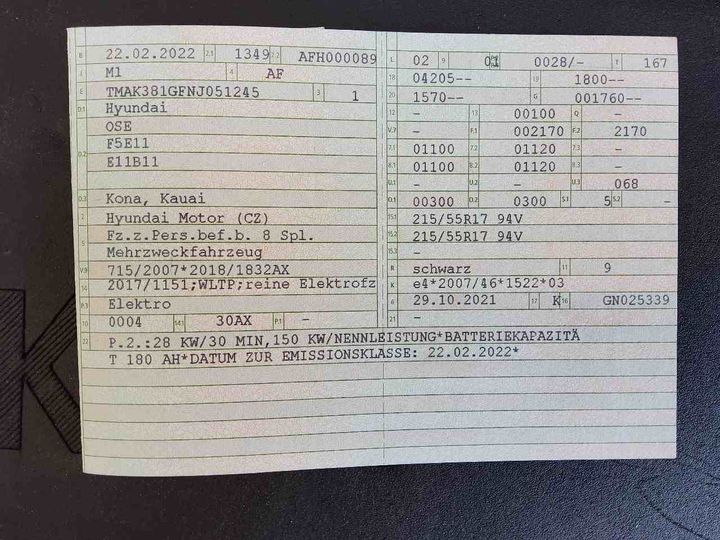 B 22.02.2022 2.1 1349 2.2 AFH000089
J M1 4 AF
E TMAK381GFNJ051245 3 1
D.1 Hyundai
OSE
D.2 F5E11
E11B11
D.3 Kona, Kauai
2 Hyundai Motor (CZ)
5 Fz.z.Pers.bef.b. 8 Spl.
Mehrzweckfahrzeug
V.9 715/2007*2018/1832AX
14 2017/1151;WLTP;reine Elektrofz
P.3 Elektro
10 0004 14.1 30AX P.1 -
22 P.2.:28 KW/30 MIN,150 KW/NENNLEISTUNG*BATTERIEKAPAZITÄ
T 180 AH*DATUM ZUR EMISSIONSKLASSE: 22.02.2022*
L 02 9 01 0028/- T 167
18 04205-- 19 1800--
20 1570-- G 001760--
12 - 13 00100 Q -
V.7 - F.1 002170 F.2 2170
7.1 01100 7.2 01120 7.3 -
8.1 01100 8.2 01120 8.3 -
U.1 - - U.3 068
O.1 00300 O.2 0300 S.1 5 S.2 -
15.1 215/55R17 94V
15.2 215/55R17 94V
15.3 -
R schwarz 11 9
K e4*2007/46*1522*03
6 29.10.2021 17 K 16 GN025339
21 -